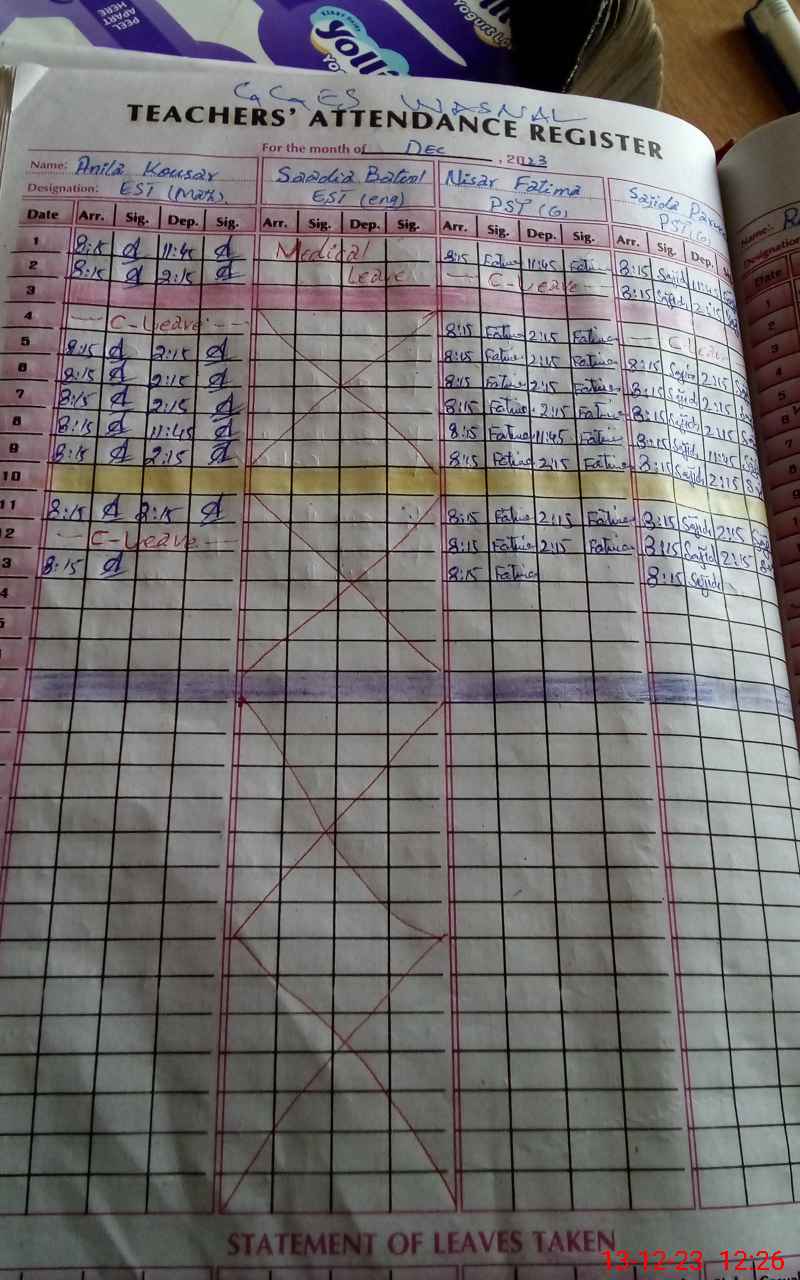 PEEL
APART
HERE
START BEING
Yolla
YOGURT LO
GGES WASNAL
TEACHERS' ATTENDANCE REGISTER
For the month of DEC, 2023
Name: Anila Kousar Saadia Batool Nisar Fatima Sajida Parve
Designation: EST (Math) EST (eng) PST (G) PST (G)
Date Arr. Sig. Dep. Sig. Arr. Sig. Dep. Sig. Arr. Sig. Dep. Sig. Arr. Sig. Dep.
1 8:15 A 11:45 A Medical 8:15 Fatima 11:45 Fatima 8:15 Sajida 11:45
2 8:15 A 2:15 A Leave C-Leave 8:15 Sajida 2:15
3
4 C-Leave 8:15 Fatima 2:15 Fatima C-Leave
5 8:15 A 2:15 A 8:15 Fatima 2:15 Fatima 8:15 Sajida 2:15
6 8:15 A 2:15 A 8:15 Fatima 2:15 Fatima 8:15 Sajida 2:15
7 8:15 A 2:15 A 8:15 Fatima 2:15 Fatima 8:15 Sajida 2:15
8 8:15 A 11:45 A 8:15 Fatima 11:45 Fatima 8:15 Sajida 11:45
9 8:15 A 2:15 A 8:15 Fatima 2:15 Fatima 8:15 Sajida 2:15
10
11 8:15 A 2:15 A 8:15 Fatima 2:15 Fatima 8:15 Sajida 2:15
12 C-Leave 8:15 Fatima 2:15 Fatima 8:15 Sajida 2:15
3 8:15 A 8:15 Fatima 8:15 Sajida
4
STATEMENT OF LEAVES TAKEN
13-12-23 12:26